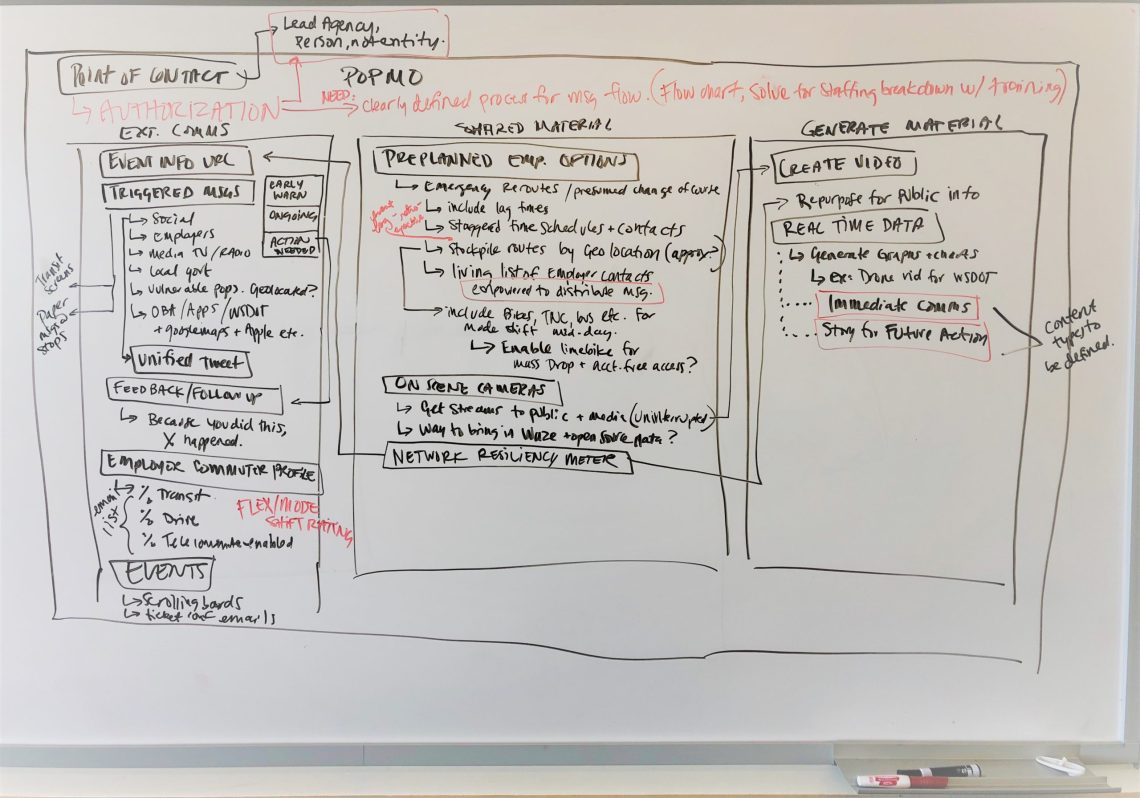 Lead Agency,
Person, not entity.
POINT OF CONTACT
POPMO
↳ AUTHORIZATION
NEED: clearly defined process for msg flow. (Flow chart, solve for staffing breakdown w/ training)
EXT. COMMS
EVENT INFO URL
TRIGGERED MSGS
EARLY
WARN
ONGOING
ACTION
NEEDED
↳ Social
↳ Employers
↳ media TV/RADIO
↳ Local govt
↳ vulnerable pops. Geolocated?
↳ OBA/APPS/WSDOT
+ googlemaps + Apple etc.
Transit
screens
Paper
msgs @
stops
Unified Tweet
FEEDBACK/FOLLOW UP
↳ Because you did this,
X happened.
EMPLOYER COMMUTER PROFILE
email
list
↳ % Transit
% Drive
% Telecommute-enabled
FLEX/MODE
SHIFT RATING
EVENTS
↳ Scrolling boards
↳ ticket conf emails
SHARED MATERIAL
PREPLANNED EMP. OPTIONS
↳ Emergency Reroutes/presumed change of course
↳ include lag times
↳ Staggerd time schedules + contacts
↳ Stockpile routes by Geolocation (approx.?)
↳ living list of Employer contacts
empowered to distribute msg.
↳ include Bikes, TNC, bus etc. for
mode shift mid-day.
↳ Enable limebike for
mass Drop + acct. free access?
ON SCENE CAMERAS
↳ Get streams to public + media (uninterrupted)
↳ way to bring in Waze + open source data?
NETWORK RESILIENCY METER
GENERATE MATERIAL
CREATE VIDEO
↳ Repurpose for Public info
REAL TIME DATA
↳ Generate Graphs + charts
↳ ex: Drone vid for WSDOT
Immediate Comms
Story for Future Action
Content
types to
be defined.